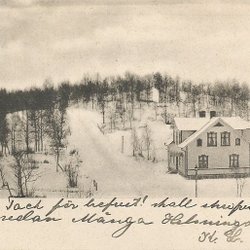 Tack för brefvet! skall skrifva
redan Många Helsningar
K. C.